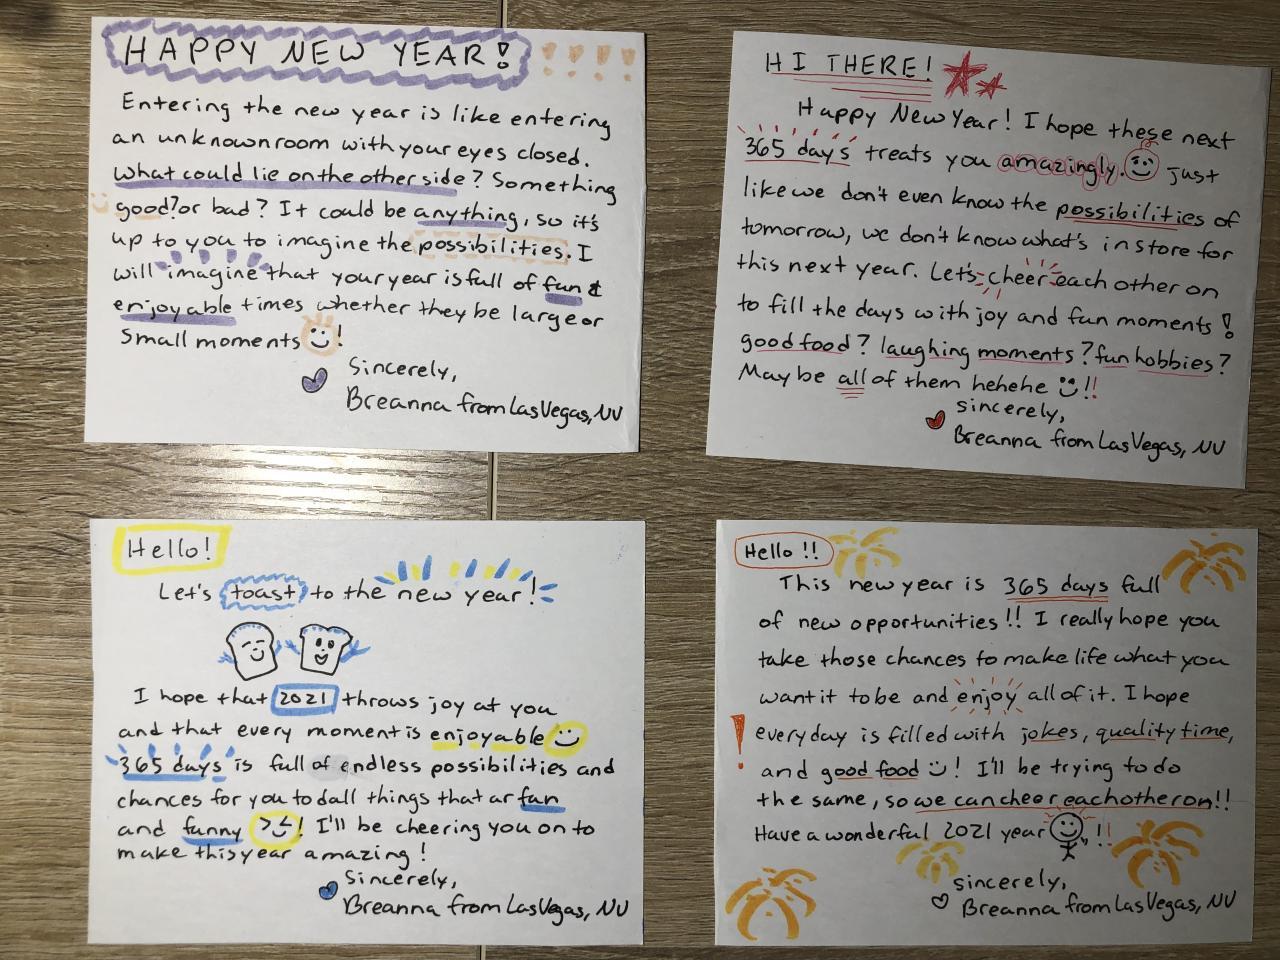 HAPPY NEW YEAR! ! ! ! !
Entering the new year is like entering
an unknown room with your eyes closed.
What could lie on the other side? Something
good? or bad? It could be anything, so it's
up to you to imagine the possibilities. I
will imagine that your year is full of fun &
enjoyable times whether they be large or
small moments !
Sincerely,
Breanna from Las Vegas, NV
HI THERE!
Happy New Year! I hope these next
365 days treats you amazingly. Just
like we don't even know the possibilities of
tomorrow, we don't know what's in store for
this next year. Let's cheer each other on
to fill the days with joy and fun moments!
good food? laughing moments? fun hobbies?
Maybe all of them hehehe !!
sincerely,
Breanna from Las Vegas, NV
Hello!
Let's toast to the new year!
I hope that 2021 throws joy at you
and that every moment is enjoyable
365 days is full of endless possibilities and
chances for you to dall things that ar fun
and funny ! I'll be cheering you on to
make this year amazing!
Sincerely,
Breanna from Las Vegas, NV
Hello!!
This new year is 365 days full
of new opportunities!! I really hope you
take those chances to make life what you
want it to be and enjoy all of it. I hope
! everyday is filled with jokes, quality time,
and good food ! I'll be trying to do
the same, so we can cheer each other on!!
Have a wonderful 2021 year !!
sincerely,
Breanna from Las Vegas, NV